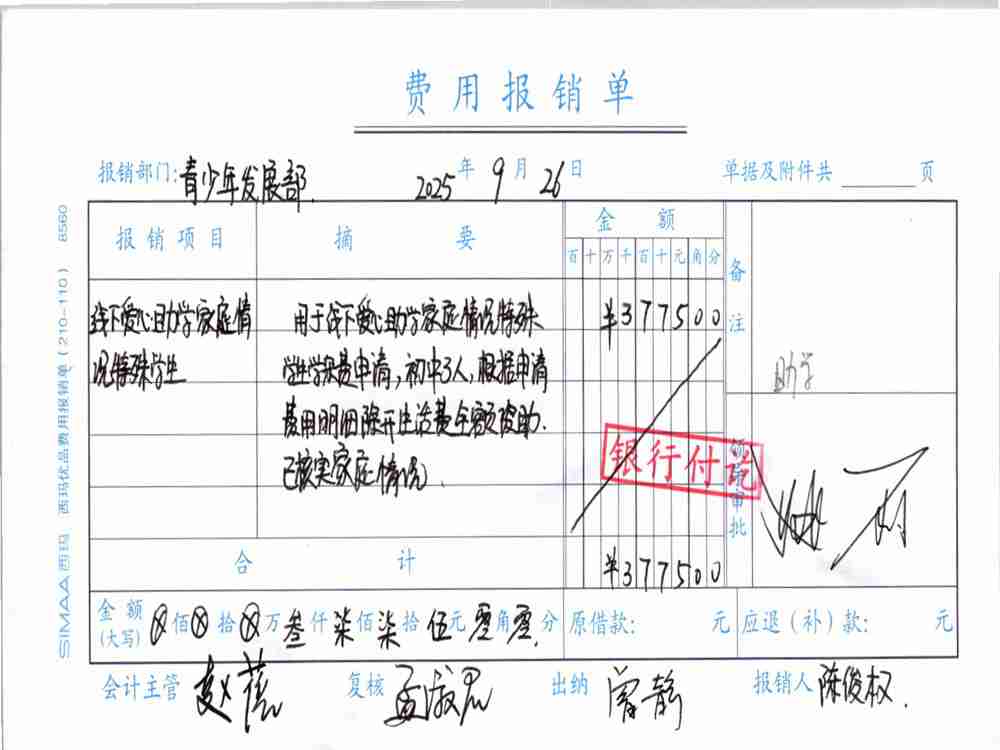 费用报销单
报销部门:青少年发展部. 2025年9月26日 单据及附件共 页
报销项目 摘要 金额 备注
百十万千百十元角分
线下爱心助学家庭情 用于线下爱心助学家庭情况特殊 ¥377500
况特殊学生 学生学费申请,初中3人,根据申请
助学
费用明细除开生活费全额资助.
已核实家庭情况.
银行付讫
领导审批
合计 ¥377500
金额(大写) ⊗佰⊗拾⊗万叁仟柒佰柒拾伍元零角零分 原借款: 元 应退(补)款: 元
会计主管 赵蓓 复核 孟淑君 出纳 曾静 报销人 陈俊权.
SIMAA西玛 西玛优品费用报销单(210-110) 8560